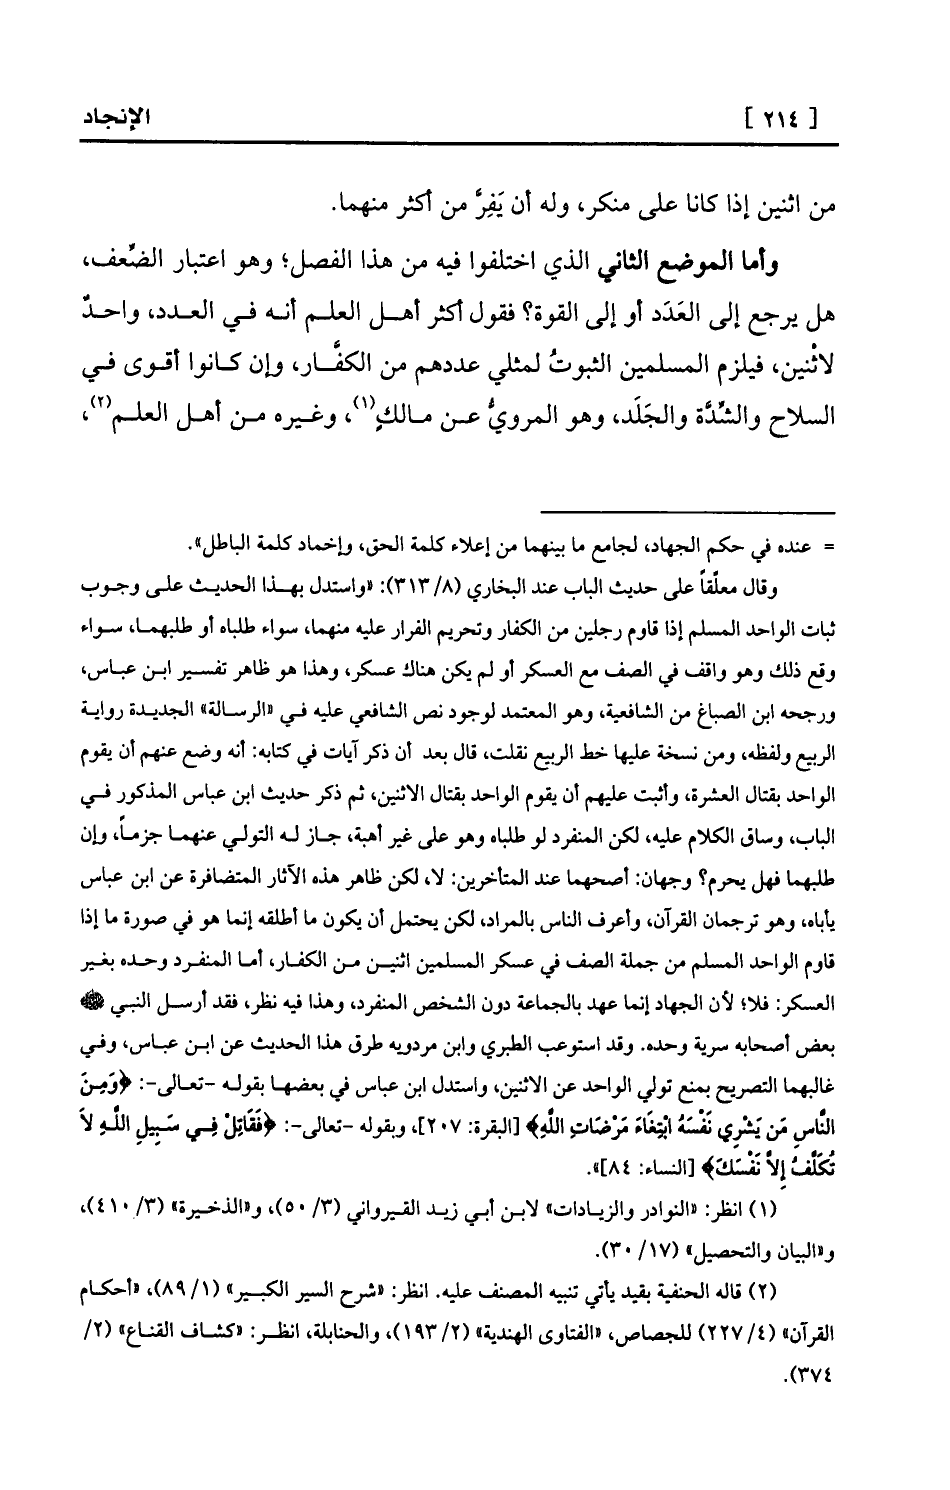 [ ٢١٤ ] الإنجاد
من اثنين إذا كانا على منكر، وله أن يَفِرَّ من أكثر منهما.
وأما الموضع الثاني الذي اختلفوا فيه من هذا الفصل؛ وهو اعتبار الضّعف،
هل يرجع إلى العَدَد أو إلى القوة؟ فقول أكثر أهل العلم أنه في العدد، واحدٌ
لاثْنين، فيلزم المسلمين الثبوتُ لمثلي عددهم من الكفَّار، وإن كانوا أقوى في
السلاح والشِّدَّة والجَلَد، وهو المرويُّ عن مالكٍ(١)، وغيره من أهل العلم(٢)،
= عنده في حكم الجهاد، لجامع ما بينهما من إعلاء كلمة الحق، وإخماد كلمة الباطل».
وقال معلّقاً على حديث الباب عند البخاري (٨/ ٣١٣): «واستدل بهذا الحديث على وجوب
ثبات الواحد المسلم إذا قاوم رجلين من الكفار وتحريم الفرار عليه منهما، سواء طلباه أو طلبهما، سواء
وقع ذلك وهو واقف في الصف مع العسكر أو لم يكن هناك عسكر، وهذا هو ظاهر تفسير ابن عباس،
ورجحه ابن الصباغ من الشافعية، وهو المعتمد لوجود نص الشافعي عليه في «الرسالة» الجديدة رواية
الربيع ولفظه، ومن نسخة عليها خط الربيع نقلت، قال بعد أن ذكر آيات في كتابه: أنه وضع عنهم أن يقوم
الواحد بقتال العشرة، وأثبت عليهم أن يقوم الواحد بقتال الاثنين، ثم ذكر حديث ابن عباس المذكور في
الباب، وساق الكلام عليه، لكن المنفرد لو طلباه وهو على غير أهبة، جاز له التولي عنهما جزماً، وإن
طلبهما فهل يحرم؟ وجهان: أصحهما عند المتأخرين: لا، لكن ظاهر هذه الآثار المتضافرة عن ابن عباس
يأباه، وهو ترجمان القرآن، وأعرف الناس بالمراد، لكن يحتمل أن يكون ما أطلقه إنما هو في صورة ما إذا
قاوم الواحد المسلم من جملة الصف في عسكر المسلمين اثنين من الكفار، أما المنفرد وحده بغير
العسكر: فلا؛ لأن الجهاد إنما عهد بالجماعة دون الشخص المنفرد، وهذا فيه نظر، فقد أرسل النبي ﷺ
بعض أصحابه سرية وحده. وقد استوعب الطبري وابن مردويه طرق هذا الحديث عن ابن عباس، وفي
غالبهما التصريح بمنع تولي الواحد عن الاثنين، واستدل ابن عباس في بعضها بقوله -تعالى-: ﴿وَمِنَ
النَّاسِ مَن يَشْرِي نَفْسَهُ ابْتِغَاءَ مَرْضَاتِ اللَّهِ﴾ [البقرة: ٢٠٧]، وبقوله -تعالى-: ﴿فَقَاتِلْ فِي سَبِيلِ اللَّهِ لاَ
تُكَلَّفُ إِلاَّ نَفْسَكَ﴾ [النساء: ٨٤]».
(١) انظر: «النوادر والزيادات» لابن أبي زيد القيرواني (٣/ ٥٠)، و«الذخيرة» (٣/ ٤١٠)،
و«البيان والتحصيل» (١٧/ ٣٠).
(٢) قاله الحنفية بقيد يأتي تنبيه المصنف عليه. انظر: «شرح السير الكبير» (١/ ٨٩)، «أحكام
القرآن» (٤/ ٢٢٧) للجصاص، «الفتاوى الهندية» (٢/ ١٩٣)، والحنابلة، انظر: «كشاف القناع» (٢/
٣٧٤).